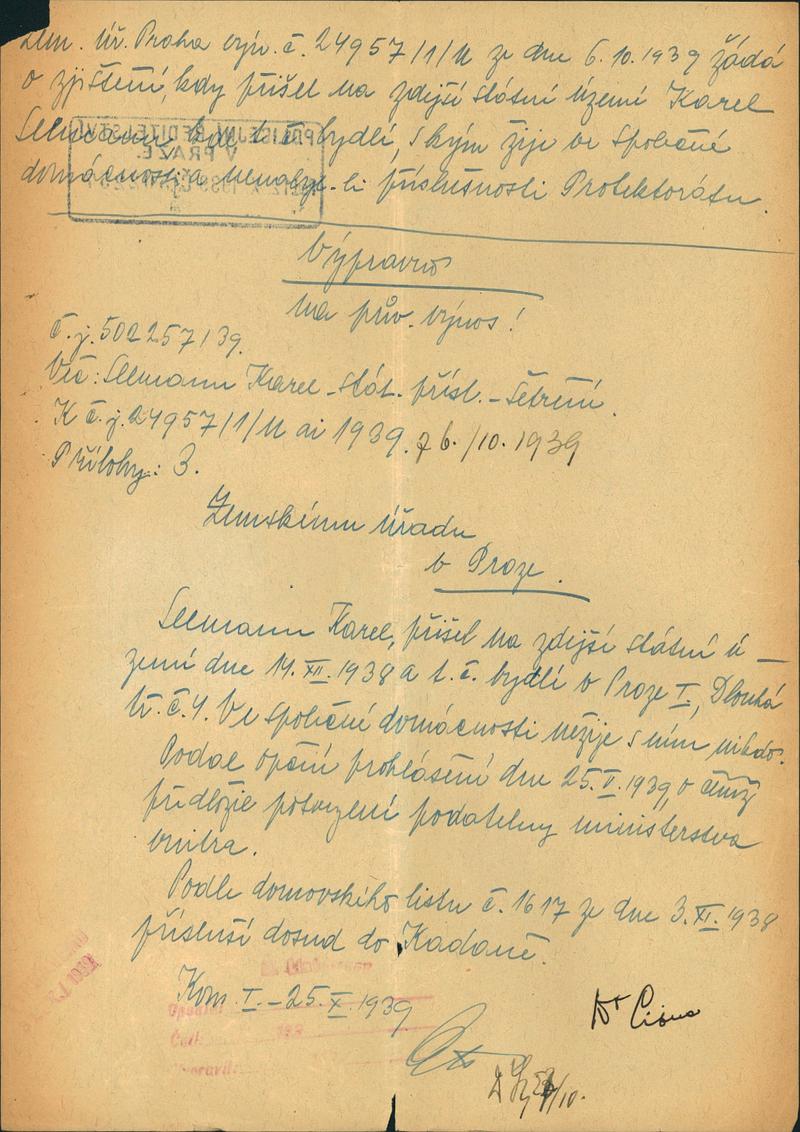 Zem. úř. Praha výn. č. 24957/1/11 ze dne 6.10.1939 žádá
o zjištění, kdy přišel na zdejší státní území Karel
Selmann, kde t. č. bydlí, s kým žije ve společné
domácnosti a nenabyl-li příslušnosti Protektorátu.
POLICEJNÍ ŘEDITELSTVÍ
V PRAZE.
Výpravno
na prův. výnos!
č.j. 502257/39.
Věc: Selmann Karel - stát. přísl. - šetření.
K č.j. 24957/1/11 ai 1939. z 6./10. 1939
Přílohy: 3.
Zemskému úřadu
v Praze.
Selmann Karel, přišel na zdejší státní ú-
zemí dne 14. XII. 1938 a t. č. bydlí v Praze I., Dlouhá
tř. č. 4. Ve společné domácnosti nežije s ním nikdo.
Podal opční prohlášení dne 25. V. 1939, o čemž
předložil potvrzení podatelny ministerstva
vnitra.
Podle domovského listu č. 1617 ze dne 3. XI. 1938
přísluší dosud do Kadaně.
Kom. I. - 25. X. 1939
Dr